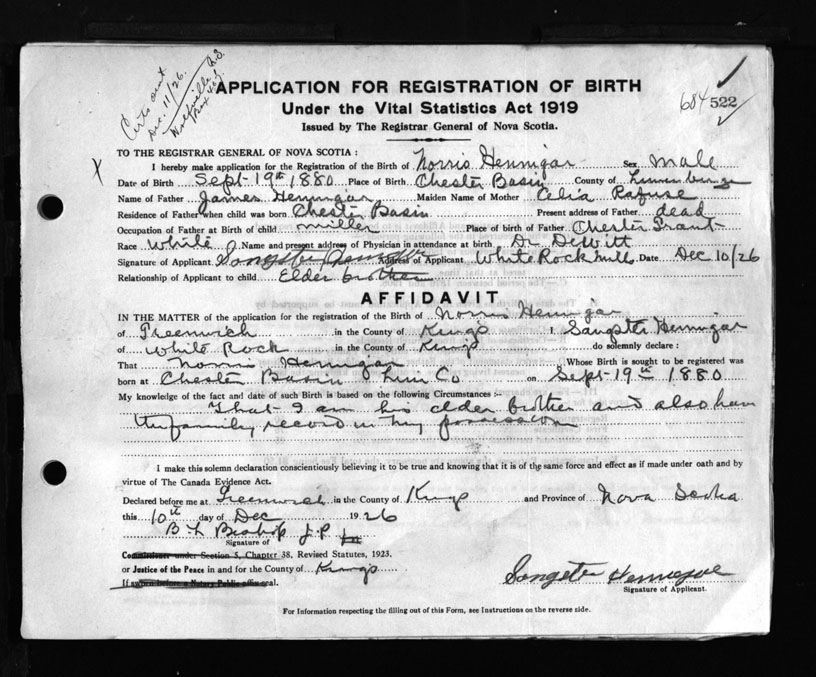 Certs sent
Dec. 11/26.
Wolfville N.S.
Box 463
APPLICATION FOR REGISTRATION OF BIRTH
684 522
Under the Vital Statistics Act 1919
Issued by The Registrar General of Nova Scotia.
TO THE REGISTRAR GENERAL OF NOVA SCOTIA :
X I hereby make application for the Registration of the Birth of Norris Hennigar Sex Male
Date of Birth Sept-19th 1880 Place of Birth Chester Basin County of Lunenburg
Name of Father James Hennigar Maiden Name of Mother Celia Rafuse
Residence of Father when child was born Chester Basin Present address of Father dead
Occupation of Father at Birth of child Miller Place of birth of Father Chester Grant
Race White Name and present address of Physician in attendance at birth Dr DeWitt
Signature of Applicant Sangster Hennigar Address of Applicant White Rock Mills Date Dec 10/26
Relationship of Applicant to child Elder brother
AFFIDAVIT
IN THE MATTER of the application for the registration of the Birth of Norris Hennigar
of Greenwich in the County of Kings I, Sangster Hennigar
of White Rock in the County of Kings do solemnly declare :
That Norris Hennigar Whose Birth is sought to be registered was
born at Chester Basin Lun Co on Sept-19th 1880
My knowledge of the fact and date of such Birth is based on the following Circumstances :-
That I am his elder brother and also have
the family record in my possession
I make this solemn declaration conscientiously believing it to be true and knowing that it is of the same force and effect as if made under oath and by
virtue of The Canada Evidence Act.
Declared before me at Greenwich in the County of Kings and Province of Nova Scotia
this 10th day of Dec 1926
B L Bishop J.P.
Signature of
Commissioner under Section 5, Chapter 38, Revised Statutes, 1923.
or Justice of the Peace in and for the County of Kings
If sworn before a Notary Public affix seal.
Sangster Hennigar
Signature of Applicant.
For Information respecting the filling out of this Form, see Instructions on the reverse side.